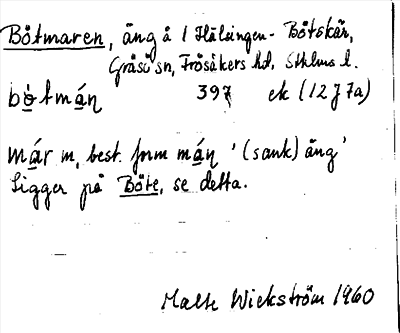 Båtmaren, äng å / Hälsingen- Båtskär,
Gräsö sn, Frösåkers hd, Sthlms l.
båtmán 397 ek (12 J 7a)
már m, best. form mán '(sank) äng'
Ligger på Böte, se detta.
Malte Wickström 1960